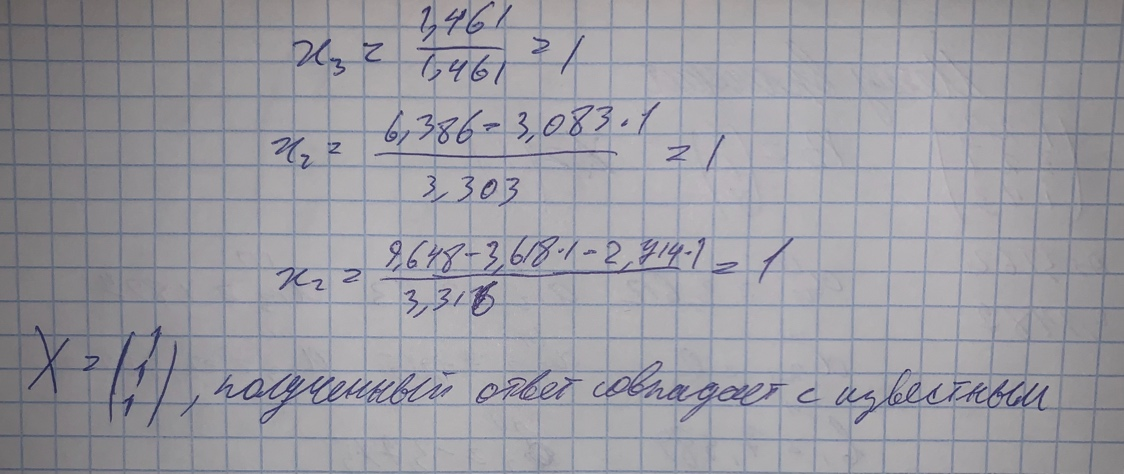 x₃ = 1,461 / 1,461 = 1
x₂ = (6,386 - 3,083·1) / 3,303 = 1
x₂ = (9,648 - 3,618·1 - 2,714·1) / 3,316 = 1
X = (1 1 1), полученный ответ совпадает с известным